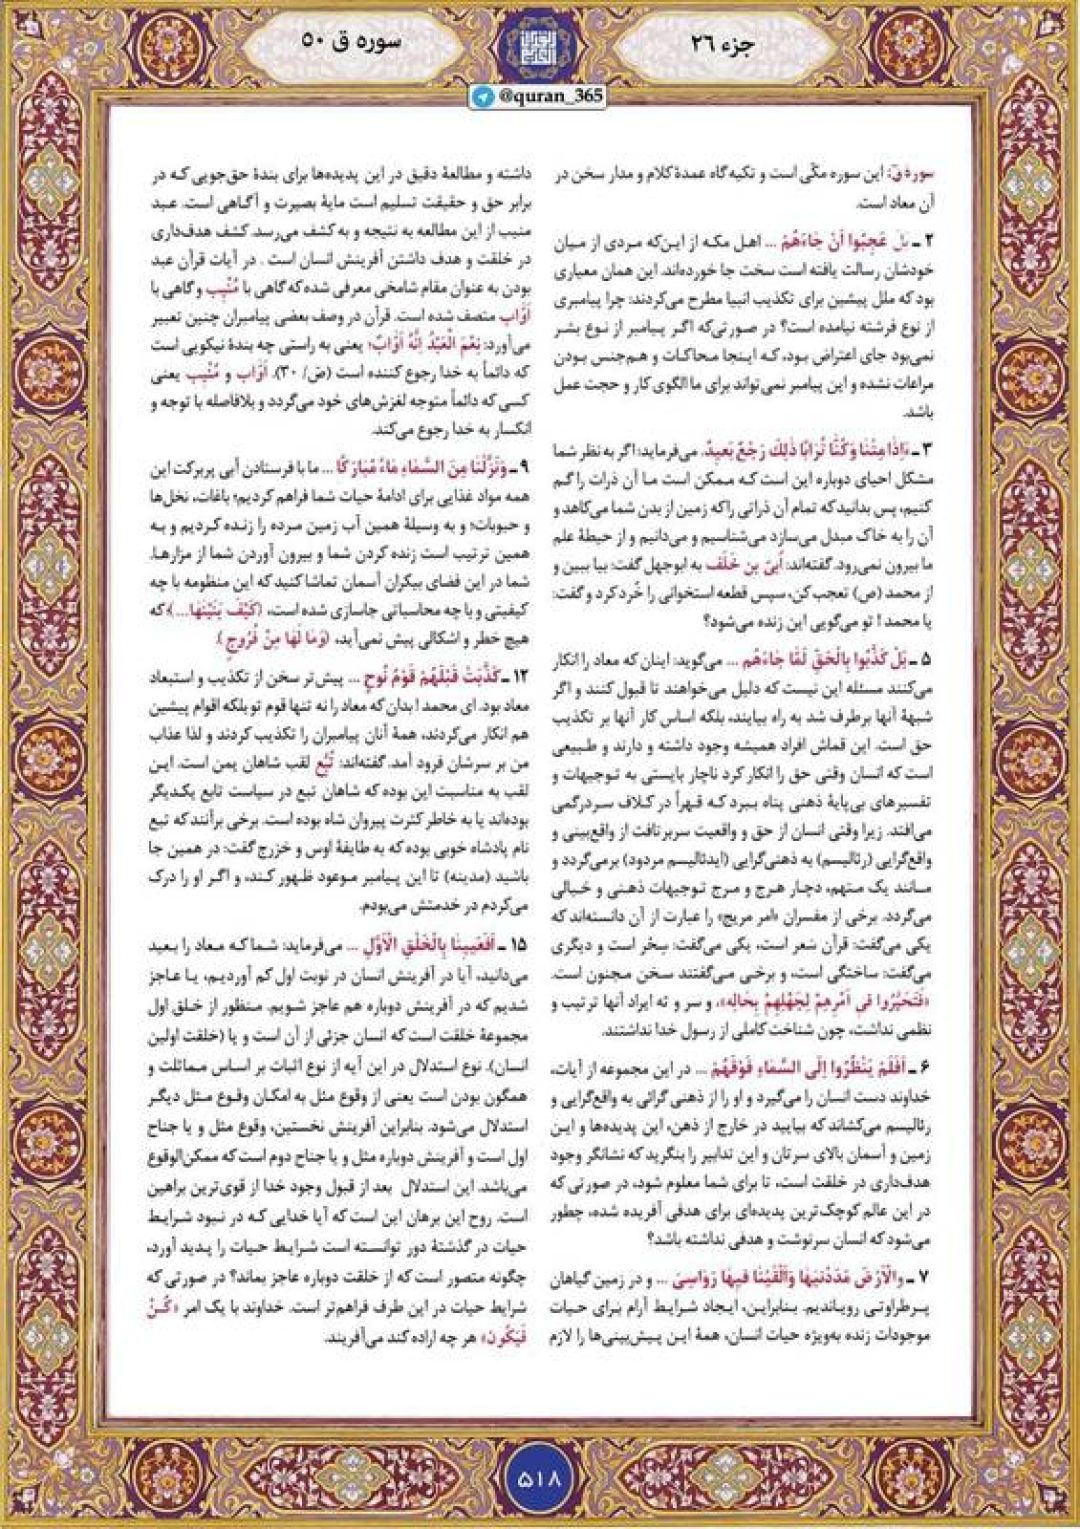 جزء ۲۶
سوره ق ۵۰
@quran_365
سورهٔ قٓ: این سوره مکّی است و تکیه‌گاه عمدهٔ کلام و مدار سخن در
آن معاد است.
۲ ـ بَلْ عَجِبُوا أَنْ جَاءَهُمْ ... اهل مکه از این‌که مردی از میان
خودشان رسالت یافته است سخت جا خورده‌اند. این همان معیاری
بود که ملل پیشین برای تکذیب انبیا مطرح می‌کردند: چرا پیامبری
از نوع فرشته نیامده است؟ در صورتی‌که اگر پیامبر از نوع بشر
نمی‌بود جای اعتراض بود، که اینجا محاکات و هم‌جنس بودن
مراعات نشده و این پیامبر نمی‌تواند برای ما الگوی کار و حجت عمل
باشد.
۳ ـ ءَإِذَا مِتْنَا وَكُنَّا تُرَابًا ذَلِكَ رَجْعٌ بَعِيدٌ. می‌فرماید: اگر به نظر شما
مشکل احیای دوباره این است که ممکن است ما آن ذرات را گم
کنیم، پس بدانید که تمام آن ذراتی را که زمین از بدن شما می‌کاهد و
آن را به خاک مبدل می‌سازد می‌شناسیم و می‌دانیم و از حیطهٔ علم
ما بیرون نمی‌رود. گفته‌اند: اُبیّ بن خَلَف به ابوجهل گفت: بیا ببین و
از محمد (ص) تعجب کن، سپس قطعه استخوانی را خُرد کرد و گفت:
یا محمد! تو می‌گویی این زنده می‌شود؟
۵ ـ بَلْ كَذَّبُوا بِالْحَقِّ لَمَّا جَاءَهُم ... می‌گوید: اینان که معاد را انکار
می‌کنند مسئله این نیست که دلیل می‌خواهند تا قبول کنند و اگر
شبههٔ آنها برطرف شد به راه بیایند، بلکه اساس کار آنها بر تکذیب
حق است. این قماش افراد همیشه وجود داشته و دارند و طبیعی
است که انسان وقتی حق را انکار کرد ناچار بایستی به توجیهات و
تفسیرهای بی‌پایهٔ ذهنی پناه ببرد که قهراً در کلاف سردرگمی
می‌افتد. زیرا وقتی انسان از حق و واقعیت سربرتافت از واقع‌بینی و
واقع‌گرایی (رئالیسم) به ذهنی‌گرایی (ایدئالیسم مردود) برمی‌گردد و
مانند یک متهم، دچار هرج و مرج توجیهات ذهنی و خیالی
می‌گردد. برخی از مفسران «امر مریج» را عبارت از آن دانسته‌اند که
یکی می‌گفت: قرآن شعر است، یکی می‌گفت: سِحْر است و دیگری
می‌گفت: ساختگی است، و برخی می‌گفتند سخن مجنون است.
«فَتَحَيَّرُوا فِي أَمْرِهِمْ لِجَهْلِهِمْ بِحَالِهِ»، و سر و ته ایراد آنها ترتیب و
نظمی نداشت، چون شناخت کاملی از رسول خدا نداشتند.
۶ ـ أَفَلَمْ يَنْظُرُوا إِلَى السَّمَاءِ فَوْقَهُمْ ... در این مجموعه از آیات،
خداوند دست انسان را می‌گیرد و او را از ذهنی گرائی به واقع‌گرایی و
رئالیسم می‌کشاند که بیایید در خارج از ذهن، این پدیده‌ها و این
زمین و آسمان بالای سرتان و این تدابیر را بنگرید که نشانگر وجود
هدف‌داری در خلقت است، تا برای شما معلوم شود، در صورتی که
در این عالم کوچک‌ترین پدیده‌ای برای هدفی آفریده شده، چطور
می‌شود که انسان سرنوشت و هدفی نداشته باشد؟
۷ ـ وَالْأَرْضَ مَدَدْنَاهَا وَأَلْقَيْنَا فِيهَا رَوَاسِيَ ... و در زمین گیاهان
پرطراوتی رویاندیم. بنابراین، ایجاد شرایط آرام برای حیات
موجودات زنده به‌ویژه حیات انسان، همهٔ این پیش‌بینی‌ها را لازم
داشته و مطالعهٔ دقیق در این پدیده‌ها برای بندهٔ حق‌جویی که در
برابر حق و حقیقت تسلیم است مایهٔ بصیرت و آگاهی است. عبد
منیب از این مطالعه به نتیجه و به کشف می‌رسد. کشف هدف‌داری
در خلقت و هدف داشتن آفرینش انسان است. در آیات قرآن عبد
بودن به عنوان مقام شامخی معرفی شده که گاهی با مُنیب و گاهی با
أَوَّاب متصف شده است. قرآن در وصف بعضی پیامبران چنین تعبیر
می‌آورد: نِعْمَ الْعَبْدُ إِنَّهُ أَوَّابٌ؛ یعنی به راستی چه بندهٔ نیکویی است
که دائماً به خدا رجوع کننده است (ص/ ۳۰). أَوَّاب و مُنیب یعنی
کسی که دائماً متوجه لغزش‌های خود می‌گردد و بلافاصله با توجه و
انکسار به خدا رجوع می‌کند.
۹ ـ وَنَزَّلْنَا مِنَ السَّمَاءِ مَاءً مُبَارَكًا ... ما با فرستادن آبی پربرکت این
همه مواد غذایی برای ادامهٔ حیات شما فراهم کردیم؛ باغات، نخل‌ها
و حبوبات؛ و به وسیلهٔ همین آب زمین مرده را زنده کردیم و به
همین ترتیب است زنده کردن شما و بیرون آوردن شما از مزارها.
شما در این فضای بیکران آسمان تماشا کنید که این منظومه با چه
کیفیتی و با چه محاسباتی جاسازی شده است، ﴿كَيْفَ بَنَيْنَاهَا...﴾ که
هیچ خطر و اشکالی پیش نمی‌آید، ﴿وَمَا لَهَا مِنْ فُرُوجٍ﴾.
۱۲ ـ كَذَّبَتْ قَبْلَهُمْ قَوْمُ نُوحٍ ... پیش‌تر سخن از تکذیب و استبعاد
معاد بود. ای محمد! بدان که معاد را نه تنها قوم تو بلکه اقوام پیشین
هم انکار می‌کردند، همهٔ آنان پیامبران را تکذیب کردند و لذا عذاب
من بر سرشان فرود آمد. گفته‌اند: تُبَّع لقب شاهان یمن است. این
لقب به مناسبت این بوده که شاهان تبع در سیاست تابع یکدیگر
بوده‌اند یا به خاطر کثرت پیروان شاه بوده است. برخی برآنند که تبع
نام پادشاه خوبی بوده که به طایفهٔ اوس و خزرج گفت: در همین جا
باشید (مدینه) تا این پیامبر موعود ظهور کند، و اگر او را درک
می‌کردم در خدمتش می‌بودم.
۱۵ ـ أَفَعَيِينَا بِالْخَلْقِ الْأَوَّلِ ... می‌فرماید: شما که معاد را بعید
می‌دانید، آیا در آفرینش انسان در نوبت اول کم آوردیم، یا عاجز
شدیم که در آفرینش دوباره هم عاجز شویم. منظور از خلق اول
مجموعهٔ خلقت است که انسان جزئی از آن است و یا (خلقت اولین
انسان). نوع استدلال در این آیه از نوع اثبات بر اساس مماثلت و
همگون بودن است یعنی از وقوع مثل به امکان وقوع مثل دیگر
استدلال می‌شود. بنابراین آفرینش نخستین، وقوع مثل و یا جناح
اول است و آفرینش دوباره مثل و یا جناح دوم است که ممکن‌الوقوع
می‌باشد. این استدلال بعد از قبول وجود خدا از قوی‌ترین براهین
است. روح این برهان این است که آیا خدایی که در نبود شرایط
حیات در گذشتهٔ دور توانسته است شرایط حیات را پدید آورد،
چگونه متصور است که از خلقت دوباره عاجز بماند؟ در صورتی که
شرایط حیات در این طرف فراهم‌تر است. خداوند با یک امر «كُنْ
فَيَكُونُ» هر چه اراده کند می‌آفریند.
۵۱۸